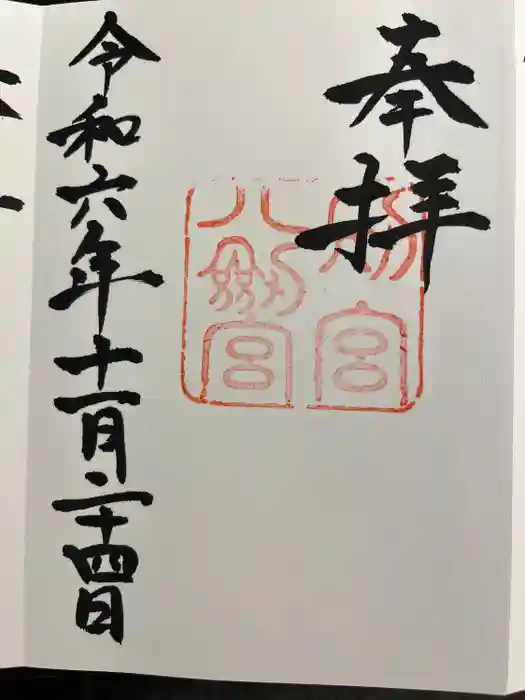 奉拝
別宮
八剱宮
令和六年十一月二十四日